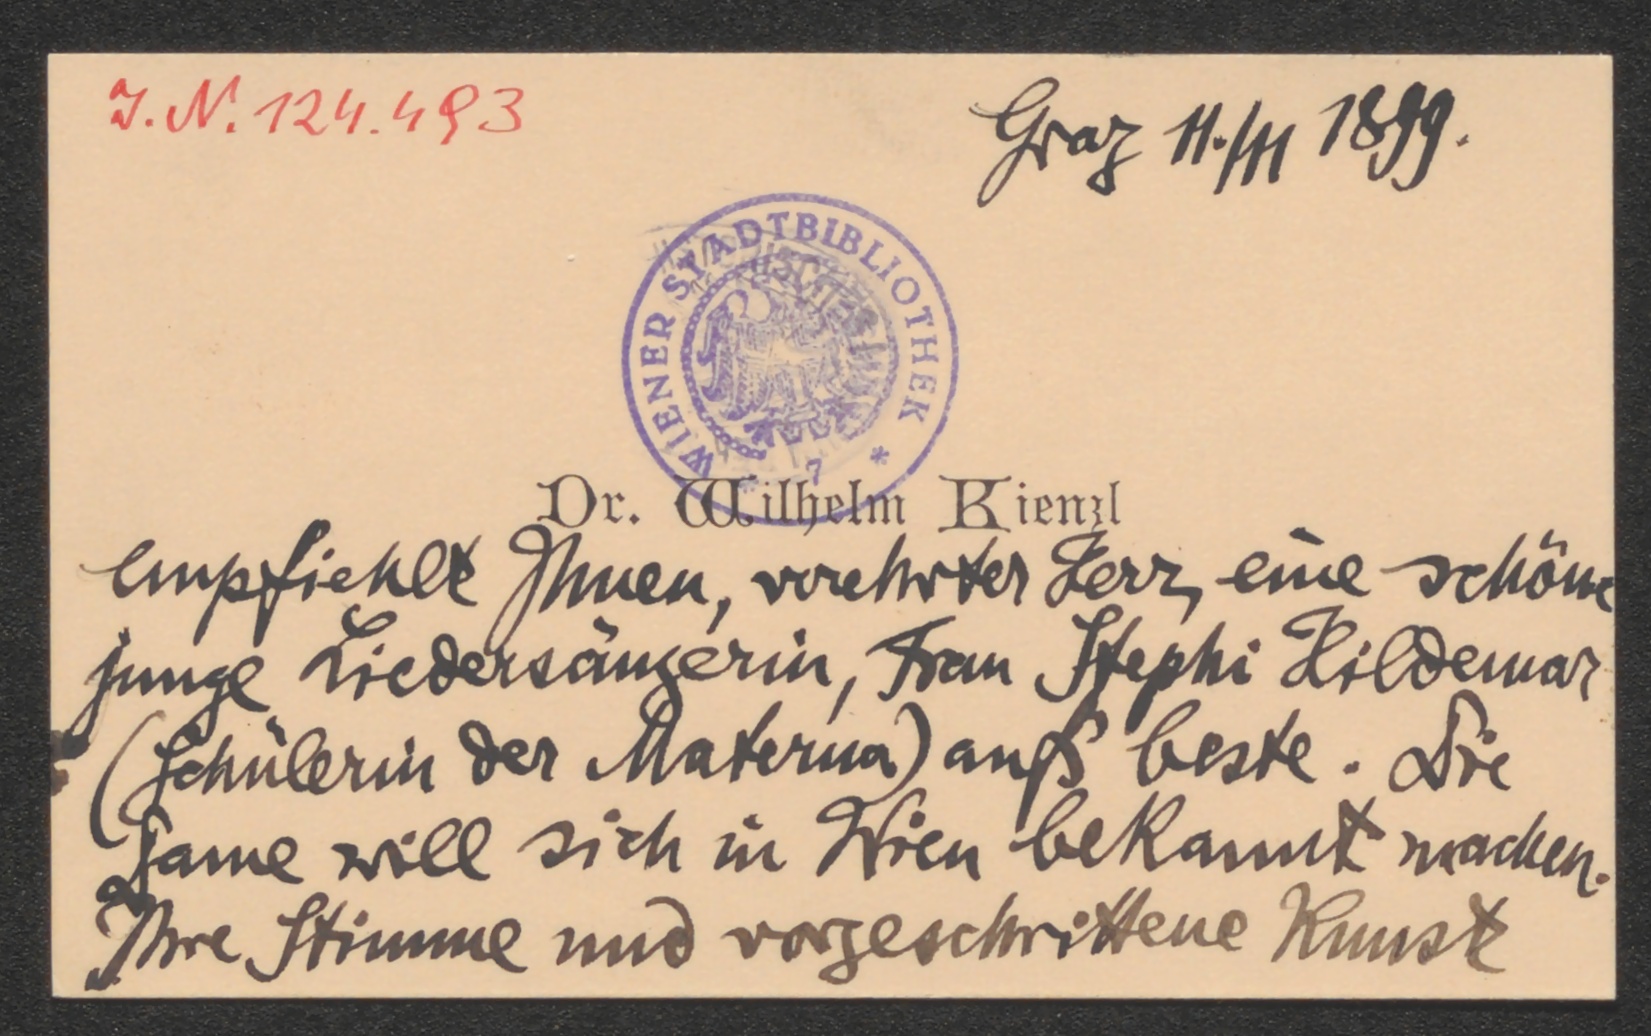 J.N. 124.493
Graz 11./III 1899.
WIENER STADTBIBLIOTHEK
7
Dr. Wilhelm Kienzl
empfiehlt Ihnen, verehrter Herr, eine schöne
junge Liedersängerin, Frau Stephi Hildemar
(Schülerin der Materna) aufs beste. Die
Dame will sich in Wien bekannt machen.
Ihre Stimme und vorgeschrittene Kunst